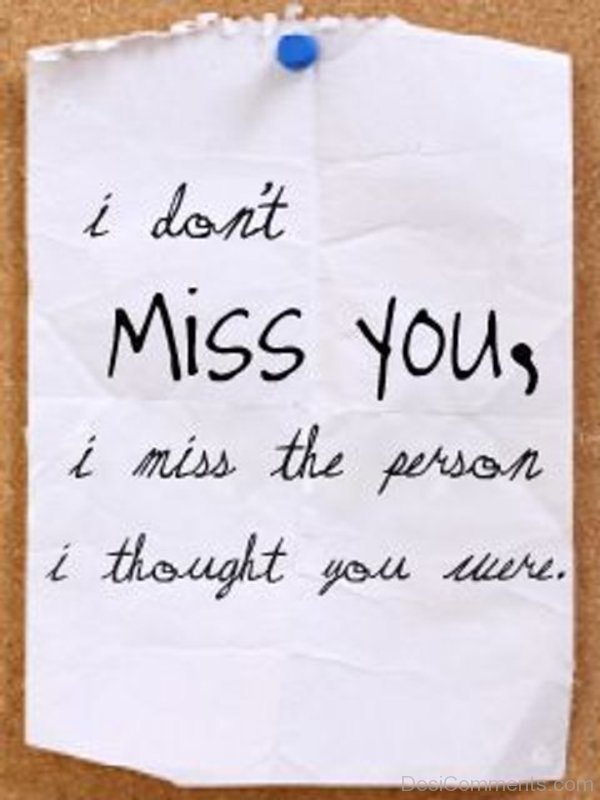 i don't
Miss you,
i miss the person
i thought you were.
DesiComments.com